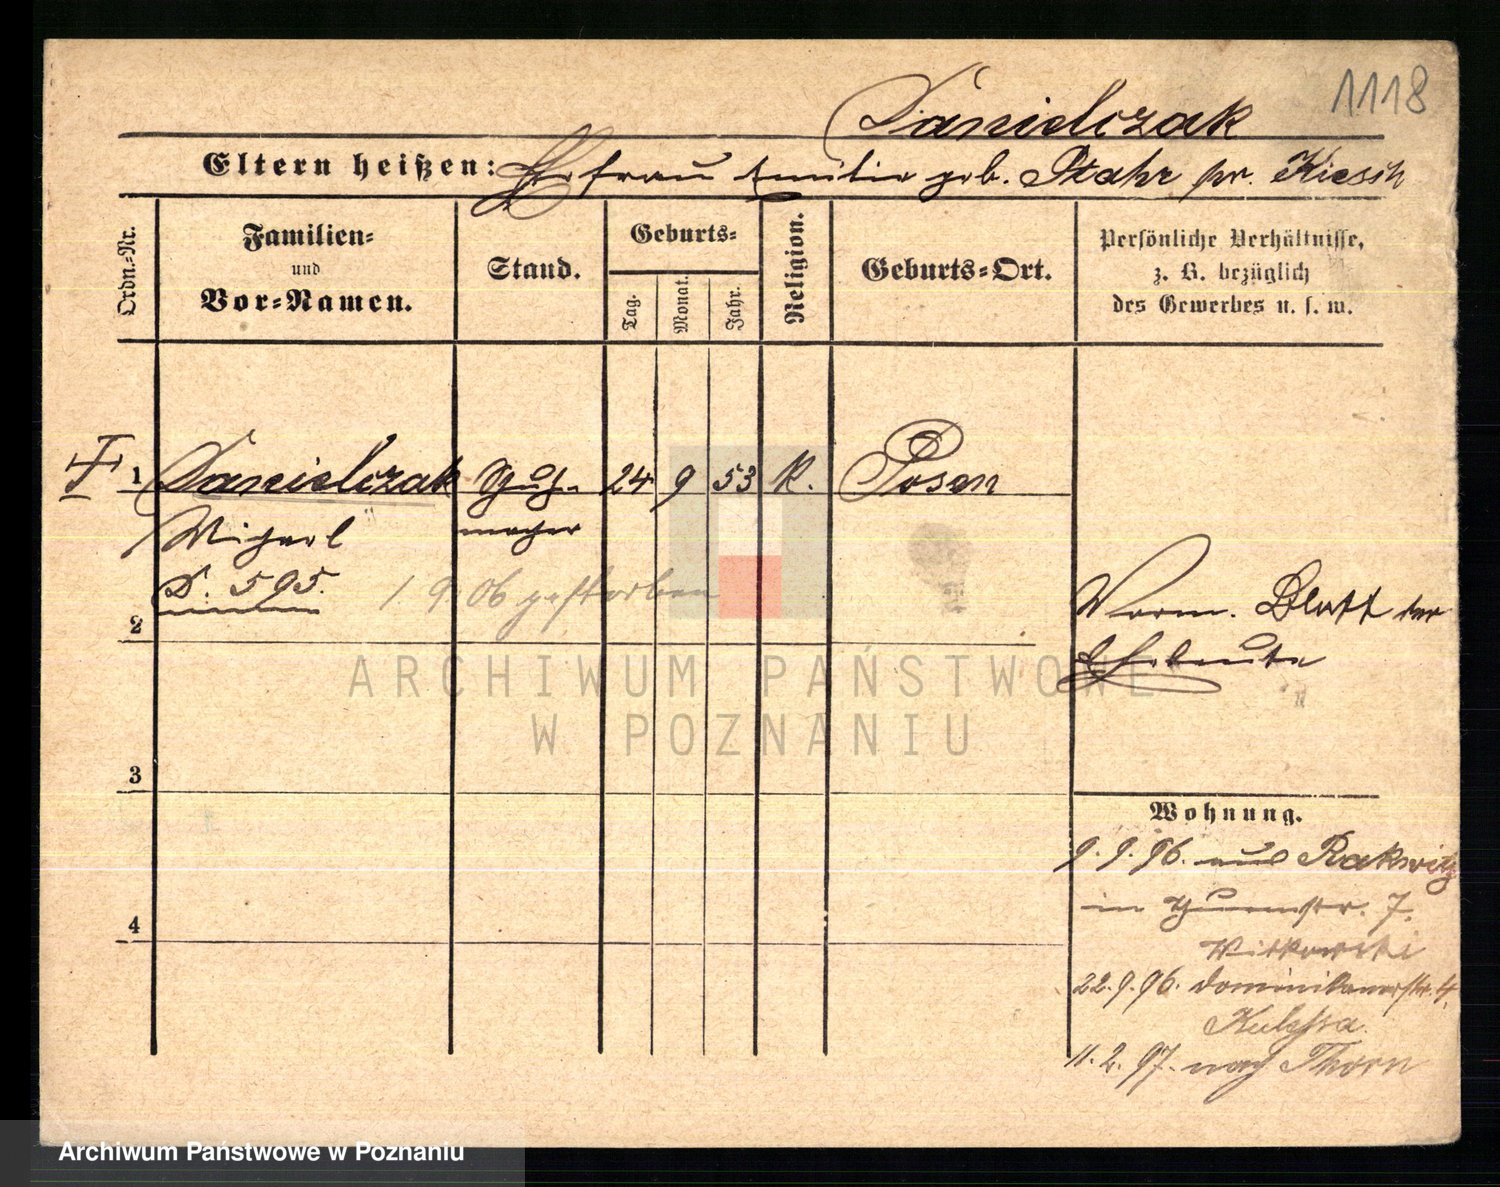 1118
Danielczak
Eltern heißen: Ehefrau Emilie geb. Stahr pr.
Ordn.-Nr.
Familien-
und
Vor-Namen.
Stand.
Geburts-
Tag.
Monat.
Jahr.
Religion.
Geburts-Ort.
Persönliche Verhältnisse,
z. B. bezüglich
des Gewerbes u. s. w.
1 Danielczak Schuh- 24 9 53 K. Posen
Michael macher
D. 595.
1 9. 06 gestorben
2
Vorm. Blatt der
Eheleute
3
4
Wohnung.
9. 9. 96. aus Rakwitz
in Thurmstr. 7.
Witkowski
22. 9. 96. Dominikanerstr. 4.
Kulessa
11. 2. 97. nach Thorn
ARCHIWUM PAŃSTWOWE
W POZNANIU
Archiwum Państwowe w Poznaniu